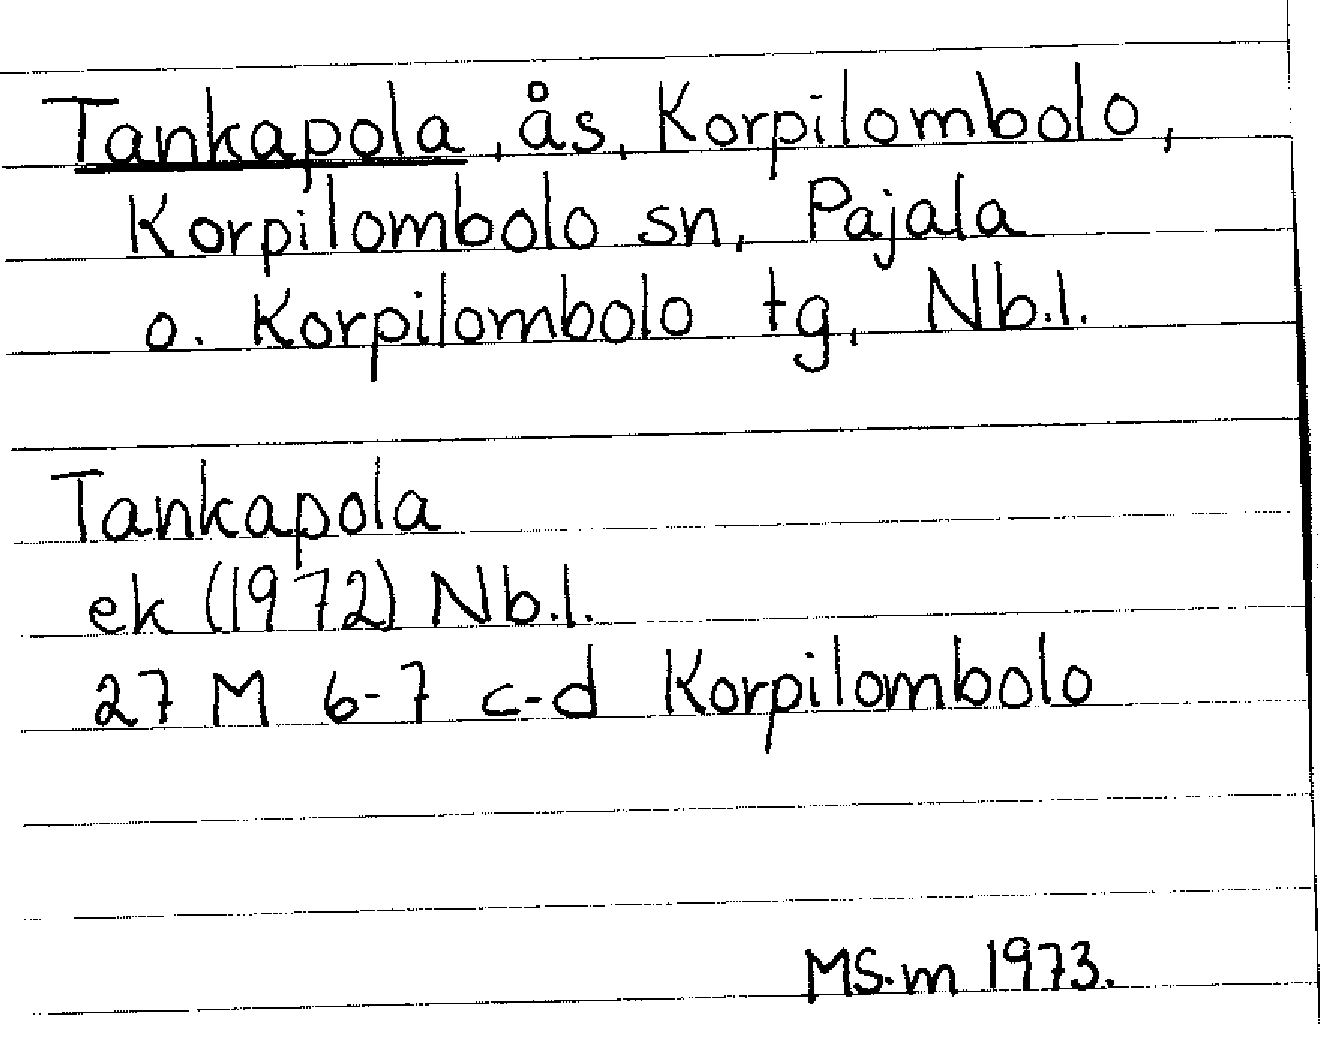 Tankapola, ås, Korpilombolo,
Korpilombolo sn, Pajala
o. Korpilombolo tg, Nb.l.
Tankapola
ek (1972) Nb.l.
27 M 6-7 c-d Korpilombolo
MS.m 1973.